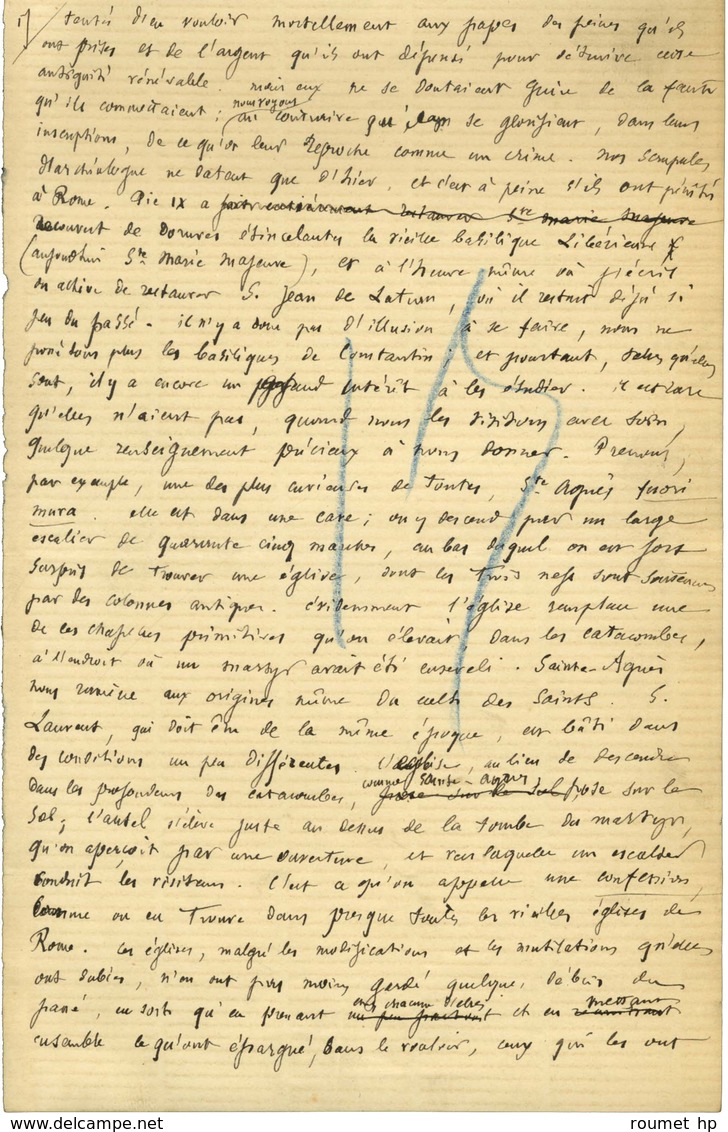 tentés d'en vouloir mortellement aux papes des peines qu'ils
ont prises et de l'argent qu'ils ont dépensé pour détruire cette
antiquité vénérable. mais eux ne se doutaient guère de la faute
qu'ils commettaient ; nous voyons
au contraire qu'ils se glorifient, dans leurs
inscriptions, de ce qu'on leur reproche comme un crime. Nos scrupules
d'archéologue ne datent que d'hier, et c'est à peine s'ils ont pénétré
à Rome. Pie IX a fait entièrement restaurer Ste marie majeure
recouvert de dorures étincelantes la vieille basilique Libérienne
(aujourd'hui Ste Marie Majeure), et à l'heure même où j'écris
on achève de restaurer S. Jean de Latran, où il restait déjà si
peu du passé. il n'y a donc pas d'illusion à se faire, nous ne
possédons plus les basiliques de Constantin ; et pourtant, telles qu'elles
sont, il y a encore un grand intérêt à les étudier. il est rare
qu'elles n'aient pas, quand nous les visitons avec soin,
quelque renseignement précieux à nous donner. Prenons,
par exemple, une des plus curieuses de toutes, Ste Agnès fuori
mura. elle est dans une cave ; on y descend par un large
escalier de quarante cinq marches, au bas duquel on est fort
surpris de trouver une église, dont les trois nefs sont soutenues
par des colonnes antiques. évidemment l'église remplace une
de ces chapelles primitives qu'on élevait, dans les catacombes,
à l'endroit où un martyr avait été enseveli. Sainte-Agnès
nous ramène aux origines même du culte des Saints. S.
Laurent, qui doit être de la même époque, est bâti dans
des conditions un peu différentes. L'église, au lieu de descendre
dans les profondeurs des catacombes, comme Sainte-Agnès, pose sur le sol pose sur le
sol ; l'autel s'élève juste au dessus de la tombe du martyr,
qu'on aperçoit par une ouverture, et vers laquelle un escalier
conduit les visiteurs. C'est ce qu'on appelle une confession,
comme on en trouve dans presque toutes les vieilles églises de
Rome. Ces églises, malgré les modifications et les mutilations qu'elles
ont subies, n'en ont pas moins gardé quelque débris du
passé, en sorte qu'en prenant chacune d'elles
un peu partout et en mettant
réunissant
ensemble ce qu'ont épargné, sans le vouloir, ceux qui les ont
roumet hp